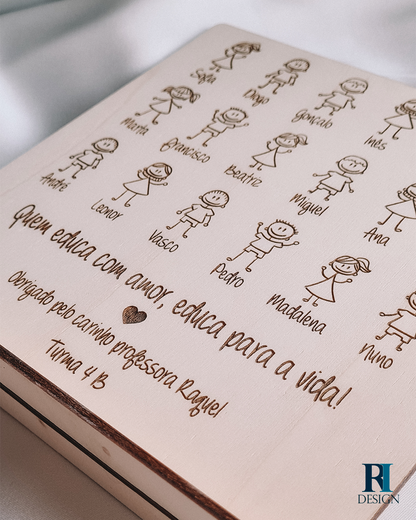 Sofia Diogo Gonçalo Inês
Marta Francisco Beatriz Miguel Ana
André Leonor Vasco Pedro Madalena Nuno
Quem educa com amor, educa para a vida!
Obrigado pelo carinho professora Raquel
Turma 4 B
RI
DESIGN